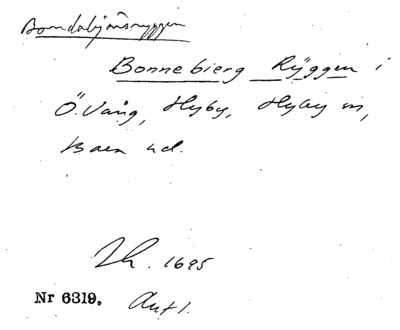 Bondabjärsryggen
Bonnebierg Ryggen i
Ö. Vång, Hyby, Hyby sn,
Bara hd.
Lh. 1695
Nr 6319. Avf 1.